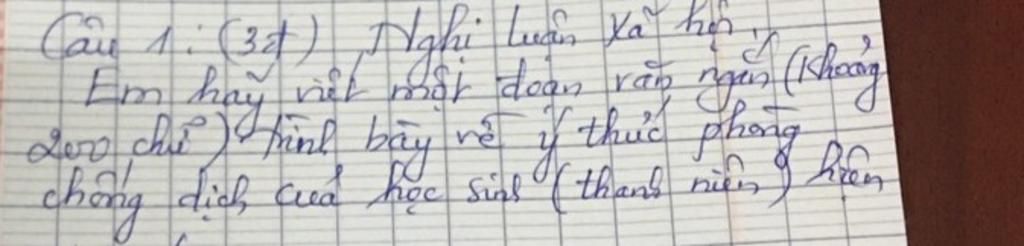 Câu 1: (3đ) Nghị luận xã hội.
Em hãy viết một đoạn văn ngắn (khoảng
200 chữ) trình bày về ý thức phòng
chống dịch của học sinh (thanh niên) hiện